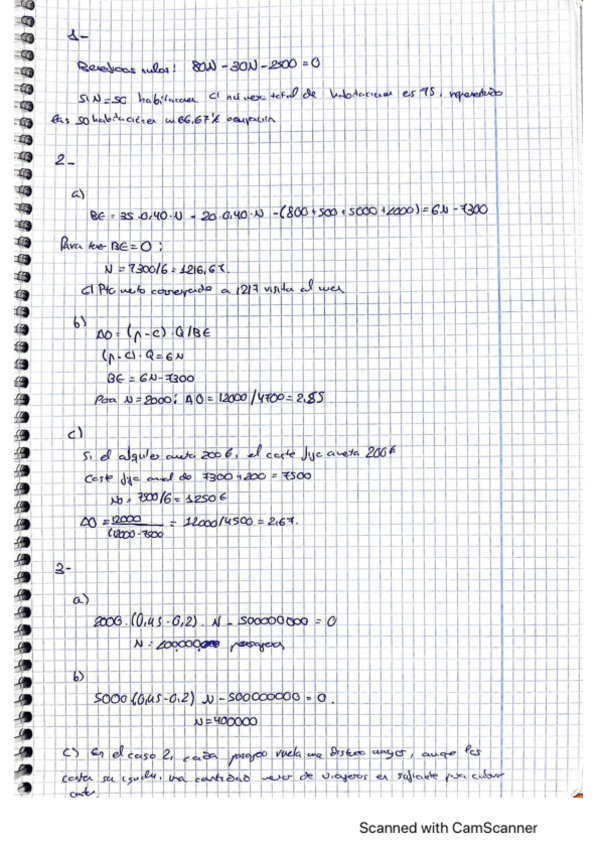 1-
Beneficios nulos: 80N - 30N - 2500 = 0
Si N=50 habitaciones el número total de habitaciones es 75,
las 50 habitaciones un 66,67% ocupación
2-
a)
BE = 35·0,40·N - 20·0,40·N - (800+500+5000+1000) = 6N - 7300
Para que BE=0:
N = 7300/6 = 1216,67.
El Pto neto corresponde a 1217 visitas al
b)
AO = (p-c)·Q/BE
(p-c)·Q = 6N
BE = 6N-7300
Para N=2000: AO = 12000/4700 = 2,55
c)
Si el alquiler aumenta 200€, el coste fijo aumenta 200€
Coste fijo anual de 7300+200 = 7500
No = 7500/6 = 1250€
AO = 12000/(12000-7500 = 12000/4500 = 2,67.
3-
a)
2000·(0,45-0,2)·N - 500000000 = 0
N = pasajeros
b)
5000(0,45-0,2)·N - 500000000 = 0.
N = 400000
c) En el caso 2, cada pasajero vuela una distancia mayor, aunque los
costes son iguales, una cantidad menor de viajeros es suficiente para cubrir
costes.
Scanned with CamScanner